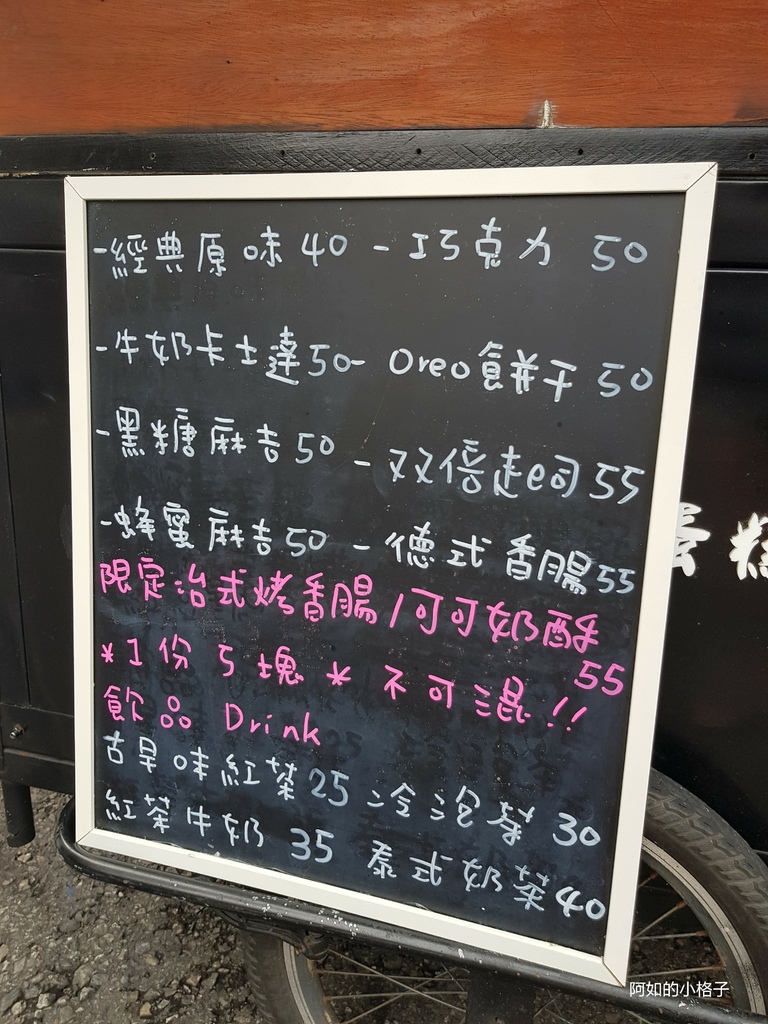 -經典原味40 -巧克力 50
-牛奶卡士達50- Oreo餅干 50
-黑糖麻吉50 -双倍起司55
-蜂蜜麻吉50 -德式香腸55
限定治式烤香腸/可可奶酥
55
*1份5塊* 不可混!!
飲品 Drink
古早味紅茶25 冷泡茶 30
紅茶牛奶 35 泰式奶茶40
蛋糕
阿如的小格子